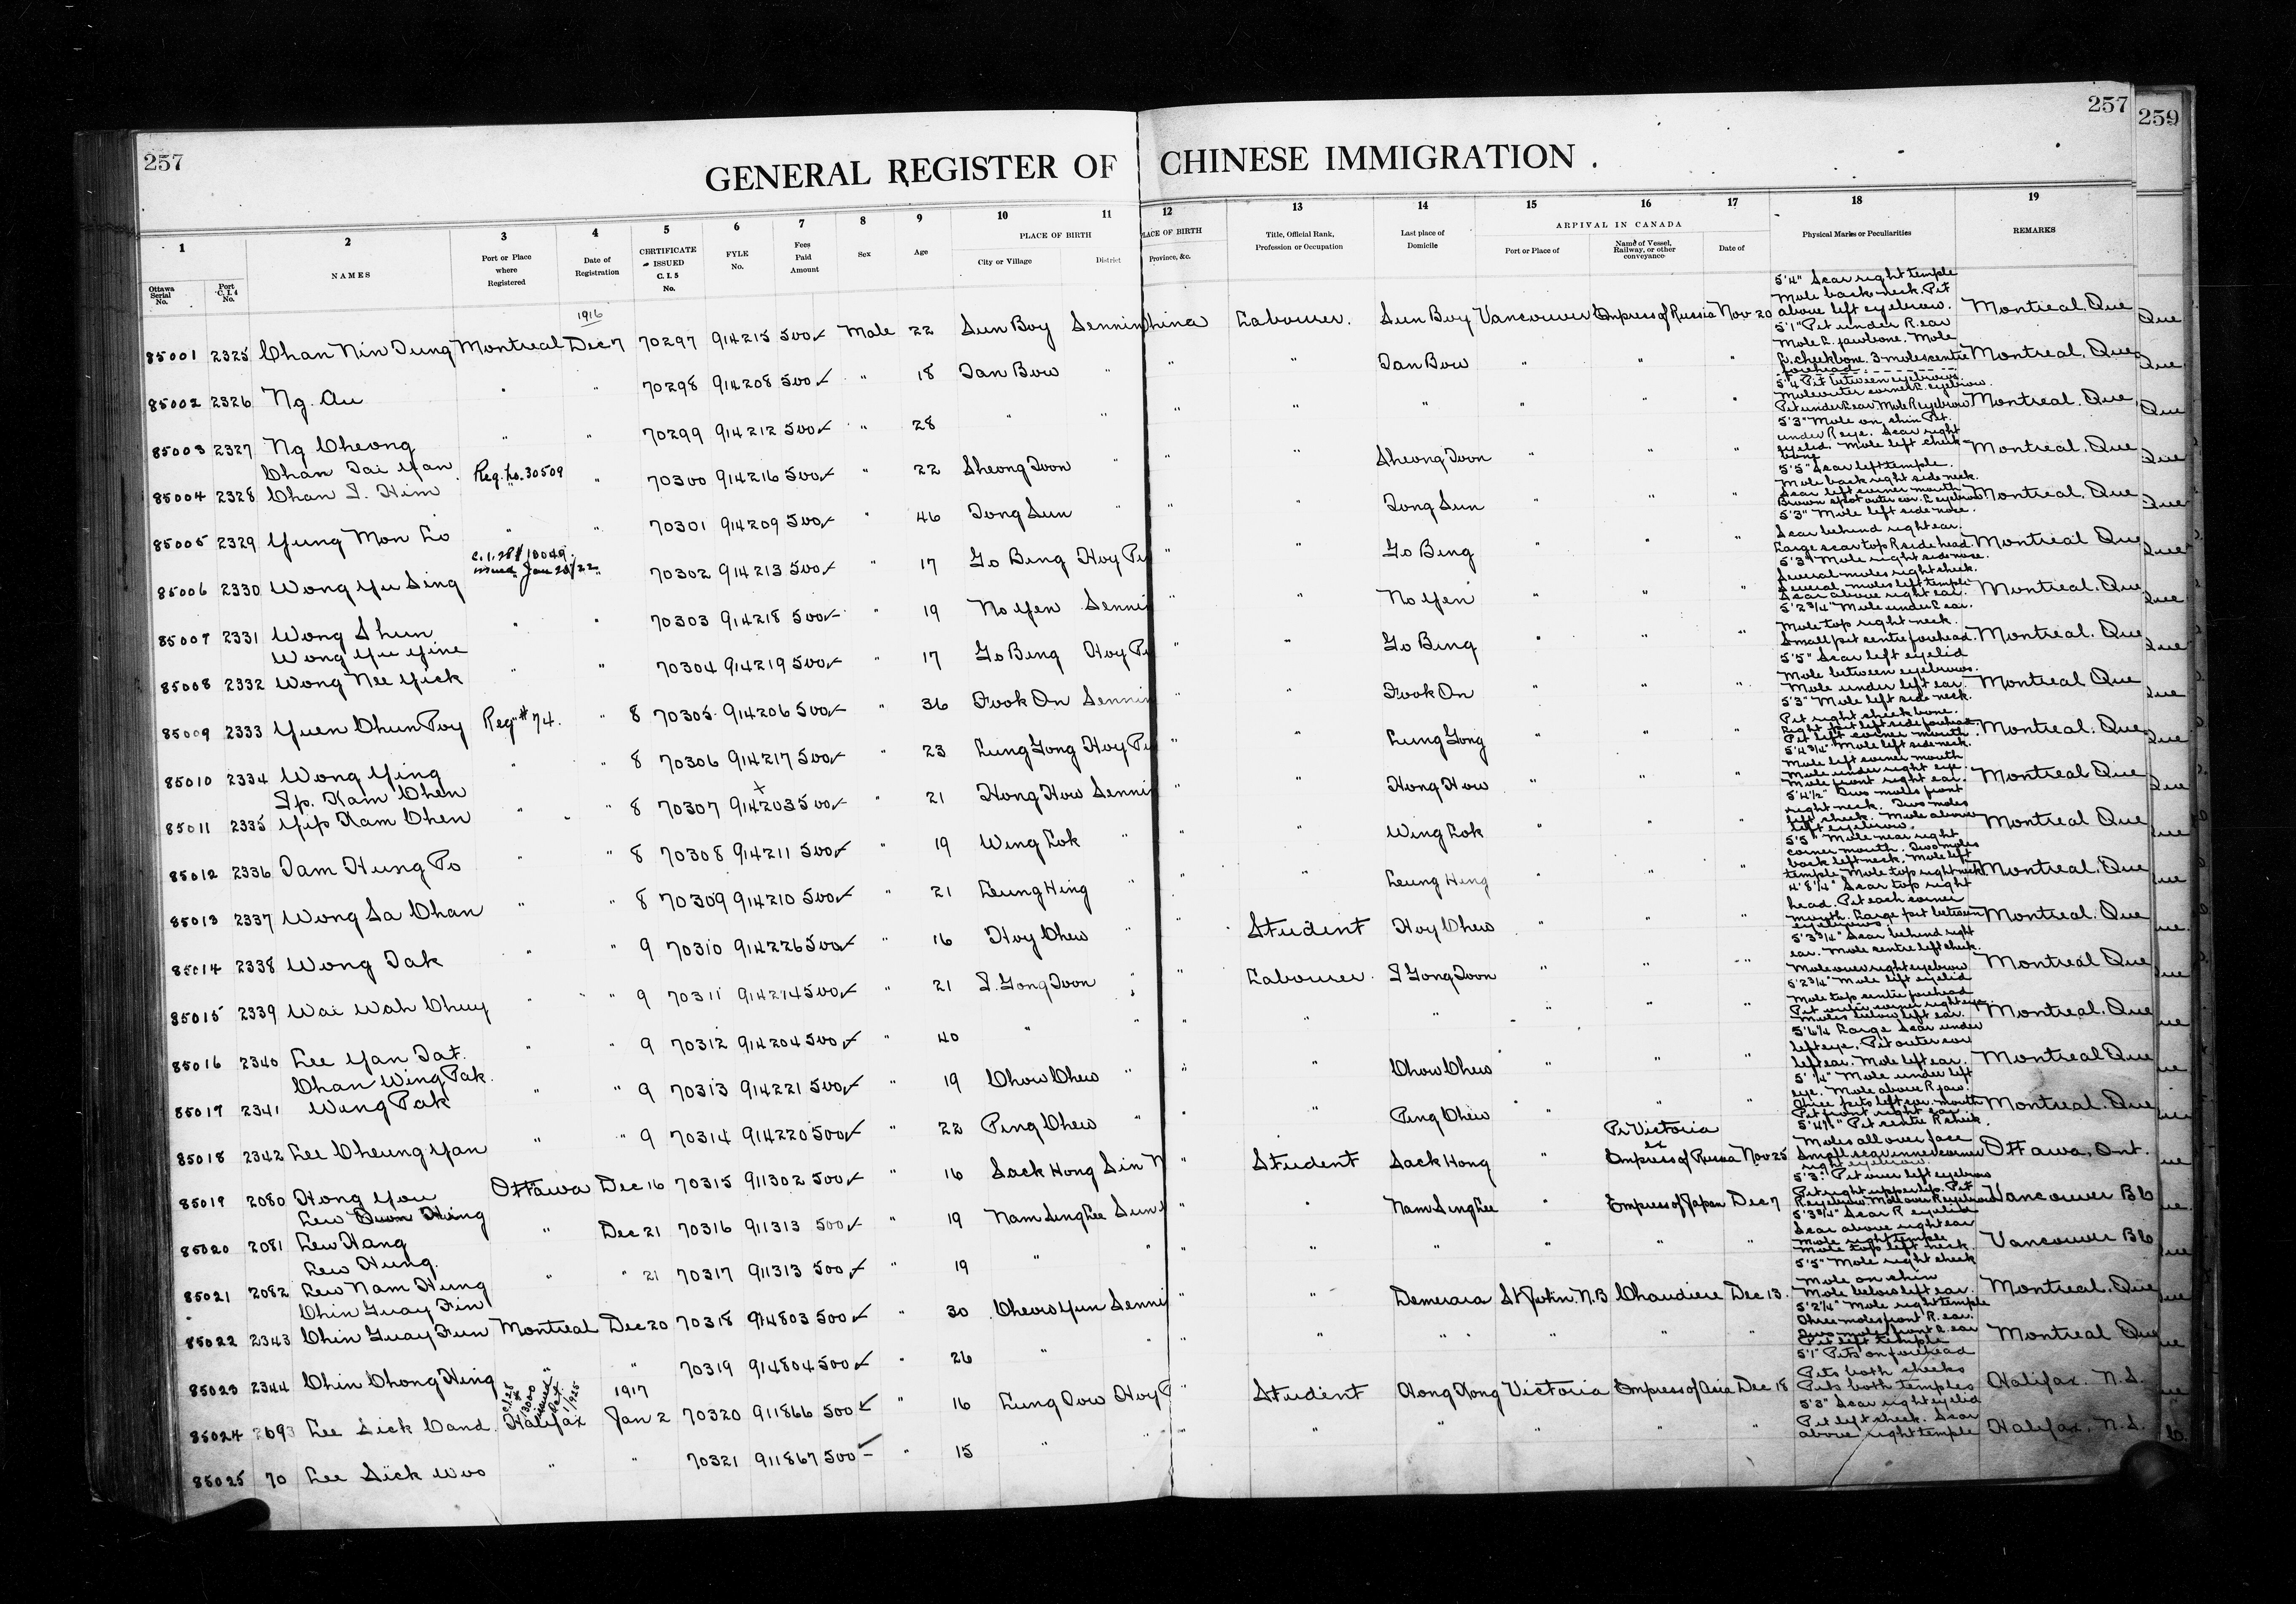 257
257
259
GENERAL REGISTER OF CHINESE IMMIGRATION.
1 2 3 4 5 6 7 8 9 10 11 12 13 14 15 16 17 18 19
Ottawa Serial No. Port C.I.4 No. NAMES Port or Place where Registered Date of Registration CERTIFICATE ISSUED C.I.5 No. FYLE No. Fees Paid Amount Sex Age PLACE OF BIRTH City or Village District PLACE OF BIRTH Province, &c. Title, Official Rank, Profession or Occupation Last place of Domicile ARRIVAL IN CANADA Port or Place of Name of Vessel, Railway, or other conveyance Date of Physical Marks or Peculiarities REMARKS
1916
85001 2325 Chan Nin Dung Montreal Dec 7 70297 914215 500 ✓ Male 22 Sun Boy Sennin China Labourer. Sun Boy Vancouver Empress of Russia Nov 20 5'4" Scar right temple Mole back neck. Pit above left eyebrow. Montreal. Que
85002 2326 Ng. Au " " 70298 914208 500 ✓ " 18 Dan Bow " " " Dan Bow " " " 5'1" Pit under R. ear Mole R. jawbone. Mole R. cheekbone. 3 moles centre forehead Montreal. Que
85003 2327 Ng Cheong " " 70299 914212 500 ✓ " 28 " " " " " " " " 5'4 Pit between eyebrows. Mole outer corner R. eyebrow. Pit under R ear. Mole R eyebrow Montreal. Que.
Chan Tai Yan
85004 2328 Chan S. Him Reg. No. 30509 " 70300 914216 500 ✓ " 22 Sheong Toon " " Sheong Toon " " " 5'3" Mole on chin Pit under R eye. Scar right eyelid. Mole left cheek bone Montreal. Que
85005 2329 Yung Mon Lo " " 70301 914209 500 ✓ " 46 Tong Sun " " " Tong Sun " " " 5'5" Scar left temple. Mole back right side neck. Scar left corner mouth Brown spot outer cor. R eyebrow Montreal. Que
C.I.28 # 10049.
issued Jan 28/22
85006 2330 Wong Yu Sing " " 70302 914213 500 ✓ " 17 Go Bing Hoy P " " Go Bing " " " 5'3" Mole left side nose. Scar behind right ear. Large scar top R side head. Montreal Que
85007 2331 Wong Shun " " 70303 914218 500 ✓ " 19 No Yen Senni " " No Yen " " " 5'3" Mole right side nose. Several moles right cheek. Several moles left temple Scar above right ear. Montreal. Que
Wong Yu Yine
85008 2332 Wong Nee Yick " " 70304 914219 500 ✓ " 17 Go Bing Hoy P " " Go Bing " " " 5'2¾" Mole under R ear. Mole top right neck. Small pit centre forehead. Montreal. Que
85009 2333 Yuen Chun Poy Reg # 74. " 8 70305 914206 500 ✓ " 36 Fook On Sennin " " Fook On " " " 5'5" Scar left eyelid Mole between eyebrows. Mole under left ear. Montreal Que
85010 2334 Wong Ying " " 8 70306 914217 500 ✓ " 23 Lung Gong Hoy P " " Lung Gong " " " 5'3" Mole left side neck. Pit right cheek bone. Pit left corner mouth Montreal. Que
Ip. Kam Chen
85011 2335 Yip Kam Chen " " 8 70307 914203 500 ✓ " 21 Hong How Senni " " Hong How " " " 5'4¾" Mole left side neck. Mole left corner mouth Mole under right eye. Mole front right ear. Montreal Que
85012 2336 Tam Hung Po " " 8 70308 914211 500 ✓ " 19 Wing Lok " " " Wing Lok " " " 5'4½" Two moles front right neck. Two moles left cheek. Mole above left eyebrow. Montreal Que
85013 2337 Wong Sa Chan " " 8 70309 914210 500 ✓ " 21 Leung Hing " " " Leung Hing " " " 5'5" Mole near right corner mouth. Two moles back left neck. Mole left temple Mole top right neck. Montreal. Que
85014 2338 Wong Tak " " 9 70310 914226 500 ✓ " 16 Hoy Chew " " Student Hoy Chew " " " 4'8¼" Scar top right head. Pit each corner mouth. Large pit between eyebrows Montreal. Que
85015 2339 Wai Wah Chuy " " 9 70311 914214 500 ✓ " 21 S. Gong Toon " " Labourer. S Gong Toon " " " 5'3¾" Scar behind right ear. Mole centre left cheek. Mole over right eyebrow Montreal Que
85016 2340 Lee Yan Tat. " " 9 70312 914204 500 ✓ " 40 " " " " " " " " 5'2¾" Mole left eyelid Mole top centre forehead Pit outer corner right eye. Moles below left ear. Montreal. Que
Chan Wing Pak.
85017 2341 Wing Pak " " 9 70313 914221 500 ✓ " 19 Chow Chew " " " Chow Chew " " " 5'6¼ Large Scar under left eye. Pit outer cor left ear. Mole left ear. Montreal Que
85018 2342 Lee Cheung Yan " " 9 70314 914220 500 ✓ " 22 Ping Chew " " " Ping Chew " " " 5' ¼" Mole under left eye. Mole above R jaw. Three pits left cor. mouth Pit front right ear. Montreal. Que
85019 2080 Hong You Ottawa Dec 16 70315 911302 500 ✓ " 16 Sack Hong Sin N " Student Sack Hong " Pr Victoria ex Empress of Russia Nov 25 Pit centre R cheek. Moles all over face Small scar inner corner right eyebrow Ottawa, Ont.
Lew Quon Hing
85020 2081 Lew Hang " Dec 21 70316 911313 500 ✓ " 19 Nam Sing Lee Sun " " Nam Sing Lee " Empress of Japan Dec 7 5'3" Pit over left eyebrow Pit right upper lip. Pit R eyebrow. Mole over R eyebrow Vancouver BC
Lew Hung.
85021 2082 Lew Nam Hung " " 21 70317 911313 500 ✓ " 19 " " " " " " " " 5'3¾" Scar R eyelid Scar above right ear Mole right temple Mole top left neck. Vancouver BC
Chin Guay Fin
85022 2343 Chin Guay Fun Montreal Dec 20 70318 914803 500 ✓ " 30 Cheow Yun Senni " " Demerara St John. N.B Chaudiere Dec 13. 5'5" Mole right cheek Mole on chin Mole below left ear. Montreal. Que
85023 2344 Chin Chong Hing " " 70319 914804 500 ✓ " 26 " " " " " " " 5'2¼" Mole right temple Three moles front R. ear. Two moles front R. ear Pit left temple Montreal Que
C.I.28 # 13000 issued Oct. 1/925
1917
85024 2693 Lee Sick Cand. Halifax Jan 2 70320 911866 500 ✓ " 16 Lung Dow Hoy P " Student Hong Kong Victoria Empress of Asia Dec 18 5'1" Pits on forehead Pits both cheeks Pits both temples Halifax. N.S.
85025 70 Lee Sick Woo " " 70321 911867 500 ✓ " 15 " " " " " " " " 5'3" Scar right eyelid Pit left cheek. Scar above right temple Halifax, N.S.